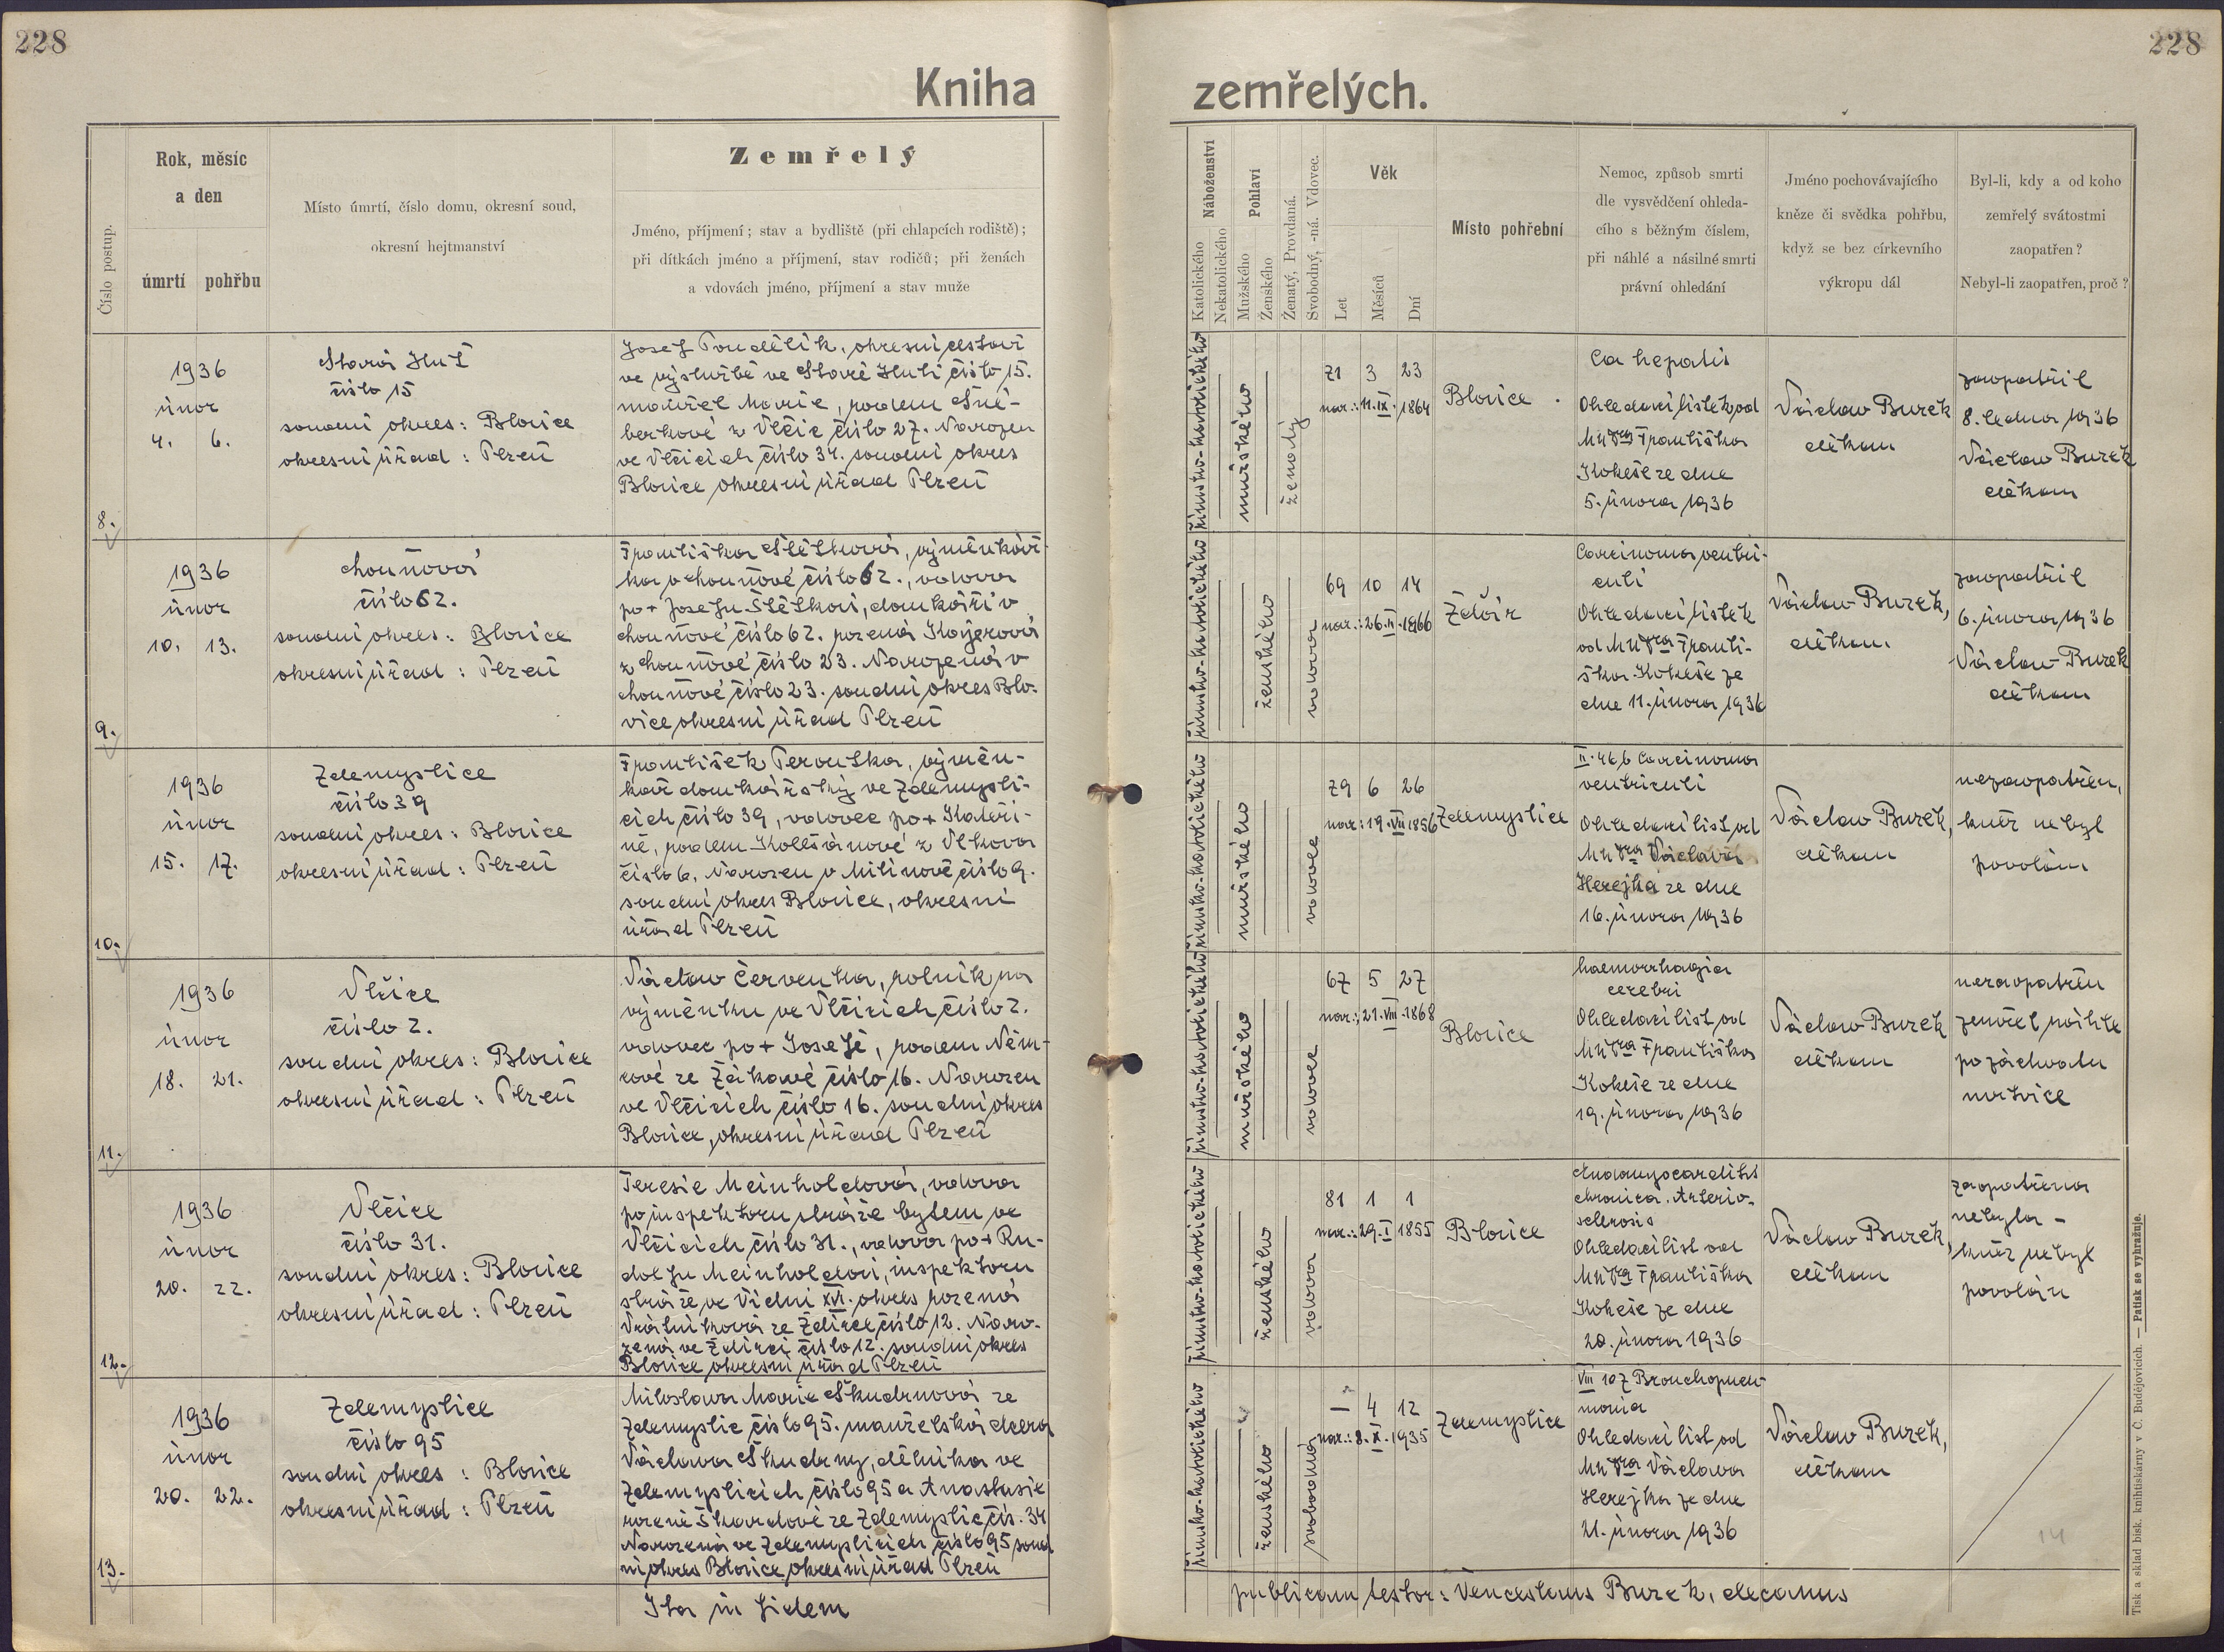 228
228
Kniha
zemřelých.
Číslo postup.
Rok, měsíc
a den
úmrtí pohřbu
Místo úmrtí, číslo domu, okresní soud,
okresní hejtmanství
Zemřelý
Jméno, příjmení; stav a bydliště (při chlapcích rodiště);
při dítkách jméno a příjmení, stav rodičů; při ženách
a vdovách jméno, příjmení a stav muže
Náboženství
Katolického
Nekatolického
Pohlaví
Mužského
Ženského
Ženatý, Provdaná.
Svobodný, -ná. Vdovec.
Věk
Let
Měsíců
Dní
Místo pohřební
Nemoc, způsob smrti
dle vysvědčení ohleda-
cího s běžným číslem,
při náhlé a násilné smrti
právní ohledání
Jméno pochovávajícího
kněze či svědka pohřbu,
když se bez církevního
výkropu dál
Byl-li, kdy a od koho
zemřelý svátostmi
zaopatřen?
Nebyl-li zaopatřen, proč?
8.
1936
únor
4. 6.
Stará Huť
číslo 15
soudní okres: Blovice
okresní úřad: Plzeň
Josef Poudělík, okresní cestář
ve výslužbě ve Staré Huti číslo 15.
manžel Marie, rodem
z Vlčic číslo 27. Narozen
ve Vlčicích číslo 34. soudní okres
Blovice okresní úřad Plzeň
římsko-katolického
mužského
ženatý
71 3 23
nar.: 11.IX.1864
Blovice
Ca hepatis
Ohledací lístek od
MUDra Františka
Kokeše ze dne
5. února 1936
Václav Burek
děkan
zaopatřil
8. ledna 1936
Václav Burek
děkan
9.
1936
únor
10. 13.
Chouňová
číslo 62.
soudní okres: Blovice
okresní úřad: Plzeň
Františka výměnkář-
ka v Chouňové číslo 62., vdova
po + Josefu domkáři v
Chouňové číslo 62. rozená
z Chouňové číslo 23. Narozená v
Chouňové číslo 23. soudní okres Blo-
vice okresní úřad Plzeň
římsko-katolického
ženského
vdova
69 10 14
1866
Žďár
Carcinoma ventri-
culi
Ohledací lístek
od MUDra Franti-
ška Kokeše ze
dne 11. února 1936
Václav Burek,
děkan.
zaopatřil
6. února 1936
Václav Burek
děkan
10.
1936
únor
15. 17.
Zdemyslice
číslo 39
soudní okres: Blovice
okresní úřad: Plzeň
František Terouška, výměn-
kář domkářský ve Zdemysli-
cích číslo 39, vdovec po + Kateři-
ně, rodem z Vlkova
číslo 6. Narozen v Milínově číslo 9.
soudní okres Blovice, okresní
úřad Plzeň
římsko-katolického
mužského
vdovec
79 6 26
nar.: 19.VII.1856
Zdemyslice
Carcinoma
ventriculi
Ohledací list od
MUDra Václava
Herejka ze dne
16. února 1936
Václav Burek,
děkan
nezaopatřen,
kněz nebyl
povolán
11.
1936
únor
18. 21.
Vlčice
číslo 2.
soudní okres: Blovice
okresní úřad: Plzeň
Václav Červenka, rolník na
výměnku ve Vlčicích číslo 2.
vdovec po + Josefě, rodem Něm-
cové ze Žákavé číslo 16. Narozen
ve Vlčicích číslo 16. soudní okres
Blovice, okresní úřad Plzeň
římsko-katolického
mužského
vdovec
67 5 27
nar.: 21.VIII.1868
Blovice
haemorrhagia
cerebri
Ohledací list od
MUDra Františka
Kokeše ze dne
19. února 1936
Václav Burek
děkan
nezaopatřen
zemřel náhle
po záchvatu
mrtvice
12.
1936
únor
20. 22.
Vlčice
číslo 31.
soudní okres: Blovice
okresní úřad: Plzeň
Teresie Meinholdová, vdova
po inspektoru stráže bytem ve
Vlčicích číslo 31., vdova po + Ru-
dolfu Meinholdovi, inspektoru
stráže ve Vídni XVI. okres rozená
Vrátníková ze Ždírce číslo 12. Naro-
zená ve Ždírci číslo 12. soudní okres
Blovice okresní úřad Plzeň
římsko-katolického
ženského
vdova
81 1 1
nar.: 29.I.1855
Blovice
Endomyocarditis
chronica. Arterio-
sclerosis
Ohledací list od
MUDra Františka
Kokeše ze dne
20. února 1936
Václav Burek,
děkan
zaopatřena
nebyla -
kněz nebyl
povolán
13.
1936
únor
20. 22.
Zdemyslice
číslo 95
soudní okres: Blovice
okresní úřad: Plzeň
Miloslava Marie Škudrnová ze
Zdemyslic číslo 95. manželská dcera
Václava Škudrny, dělníka ve
Zdemyslicích číslo 95 a Anastasie
rozené Škardové ze Zdemyslic čís. 34
Narozená ve Zdemyslicích číslo 95 soud
ní okres Blovice okresní úřad Plzeň
římsko-katolického
ženského
svobodná
— 4 12
nar.: 8.X.1935
Zdemyslice
VIII 107 Bronchopneu-
monia
Ohledací list od
MUDra Václava
Herejka ze dne
21. února 1936
Václav Burek,
děkan
14
Ita in fidem
publicam testor: Venceslaus Burek, decanus
Tisk a sklad bisk. knihtiskárny v Č. Budějovicích. — Patisk se vyhražuje.